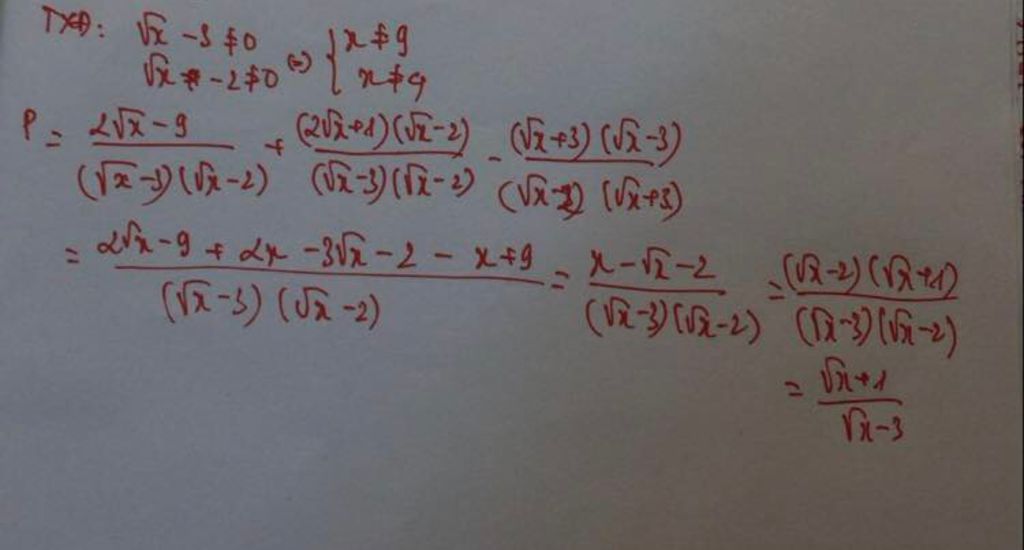 TXĐ: √x - 3 ≠ 0
√x - 2 ≠ 0 (=) { x ≠ 9
x ≠ 4
P = (2√x - 9)/((√x - 3)(√x - 2)) + ((2√x + 1)(√x - 2))/((√x - 3)(√x - 2)) - ((√x + 3)(√x - 3))/((√x - 2)(√x + 3))
= (2√x - 9 + 2x - 3√x - 2 - x + 9)/((√x - 3)(√x - 2)) = (x - √x - 2)/((√x - 3)(√x - 2)) = ((√x - 2)(√x + 1))/((√x - 3)(√x - 2))
= (√x + 1)/(√x - 3)